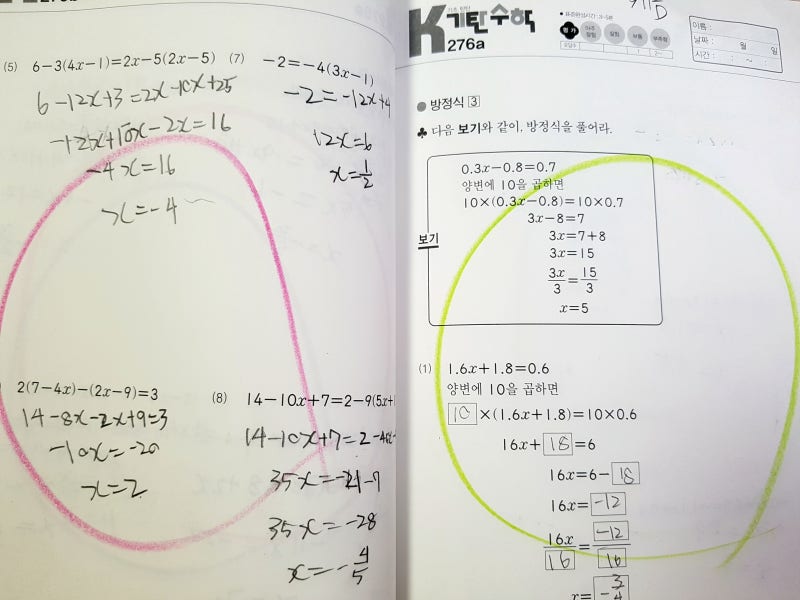 (5) 6-3(4x-1)=2x-5(2x-5)
6-12x+3=2x-10x+25
-12x+10x-2x=16
-4x=16
x=-4
(7) -2=-4(3x-1)
-2=-12x+4
12x=6
x=1/2
2(7-4x)-(2x-9)=3
14-8x-2x+9=3
-10x=-20
x=2
(8) 14-10x+7=2-9(5x+
14-10x+7=2-45x
35x=-21-7
35x=-28
x=-4/5
K 기탄수학
276a
● 표준완성시간 : 3~5분
평가
아주 잘함
잘함
보통
부족함
오답수
이름 :
날짜 : 월 일
시간 : : ~ :
● 방정식 3
♣ 다음 보기와 같이, 방정식을 풀어라.
보기
0.3x-0.8=0.7
양변에 10을 곱하면
10×(0.3x-0.8)=10×0.7
3x-8=7
3x=7+8
3x=15
3x/3=15/3
x=5
(1) 1.6x+1.8=0.6
양변에 10을 곱하면
10×(1.6x+1.8)=10×0.6
16x+18=6
16x=6-18
16x=-12
16x/16=-12/16
x=-3/4